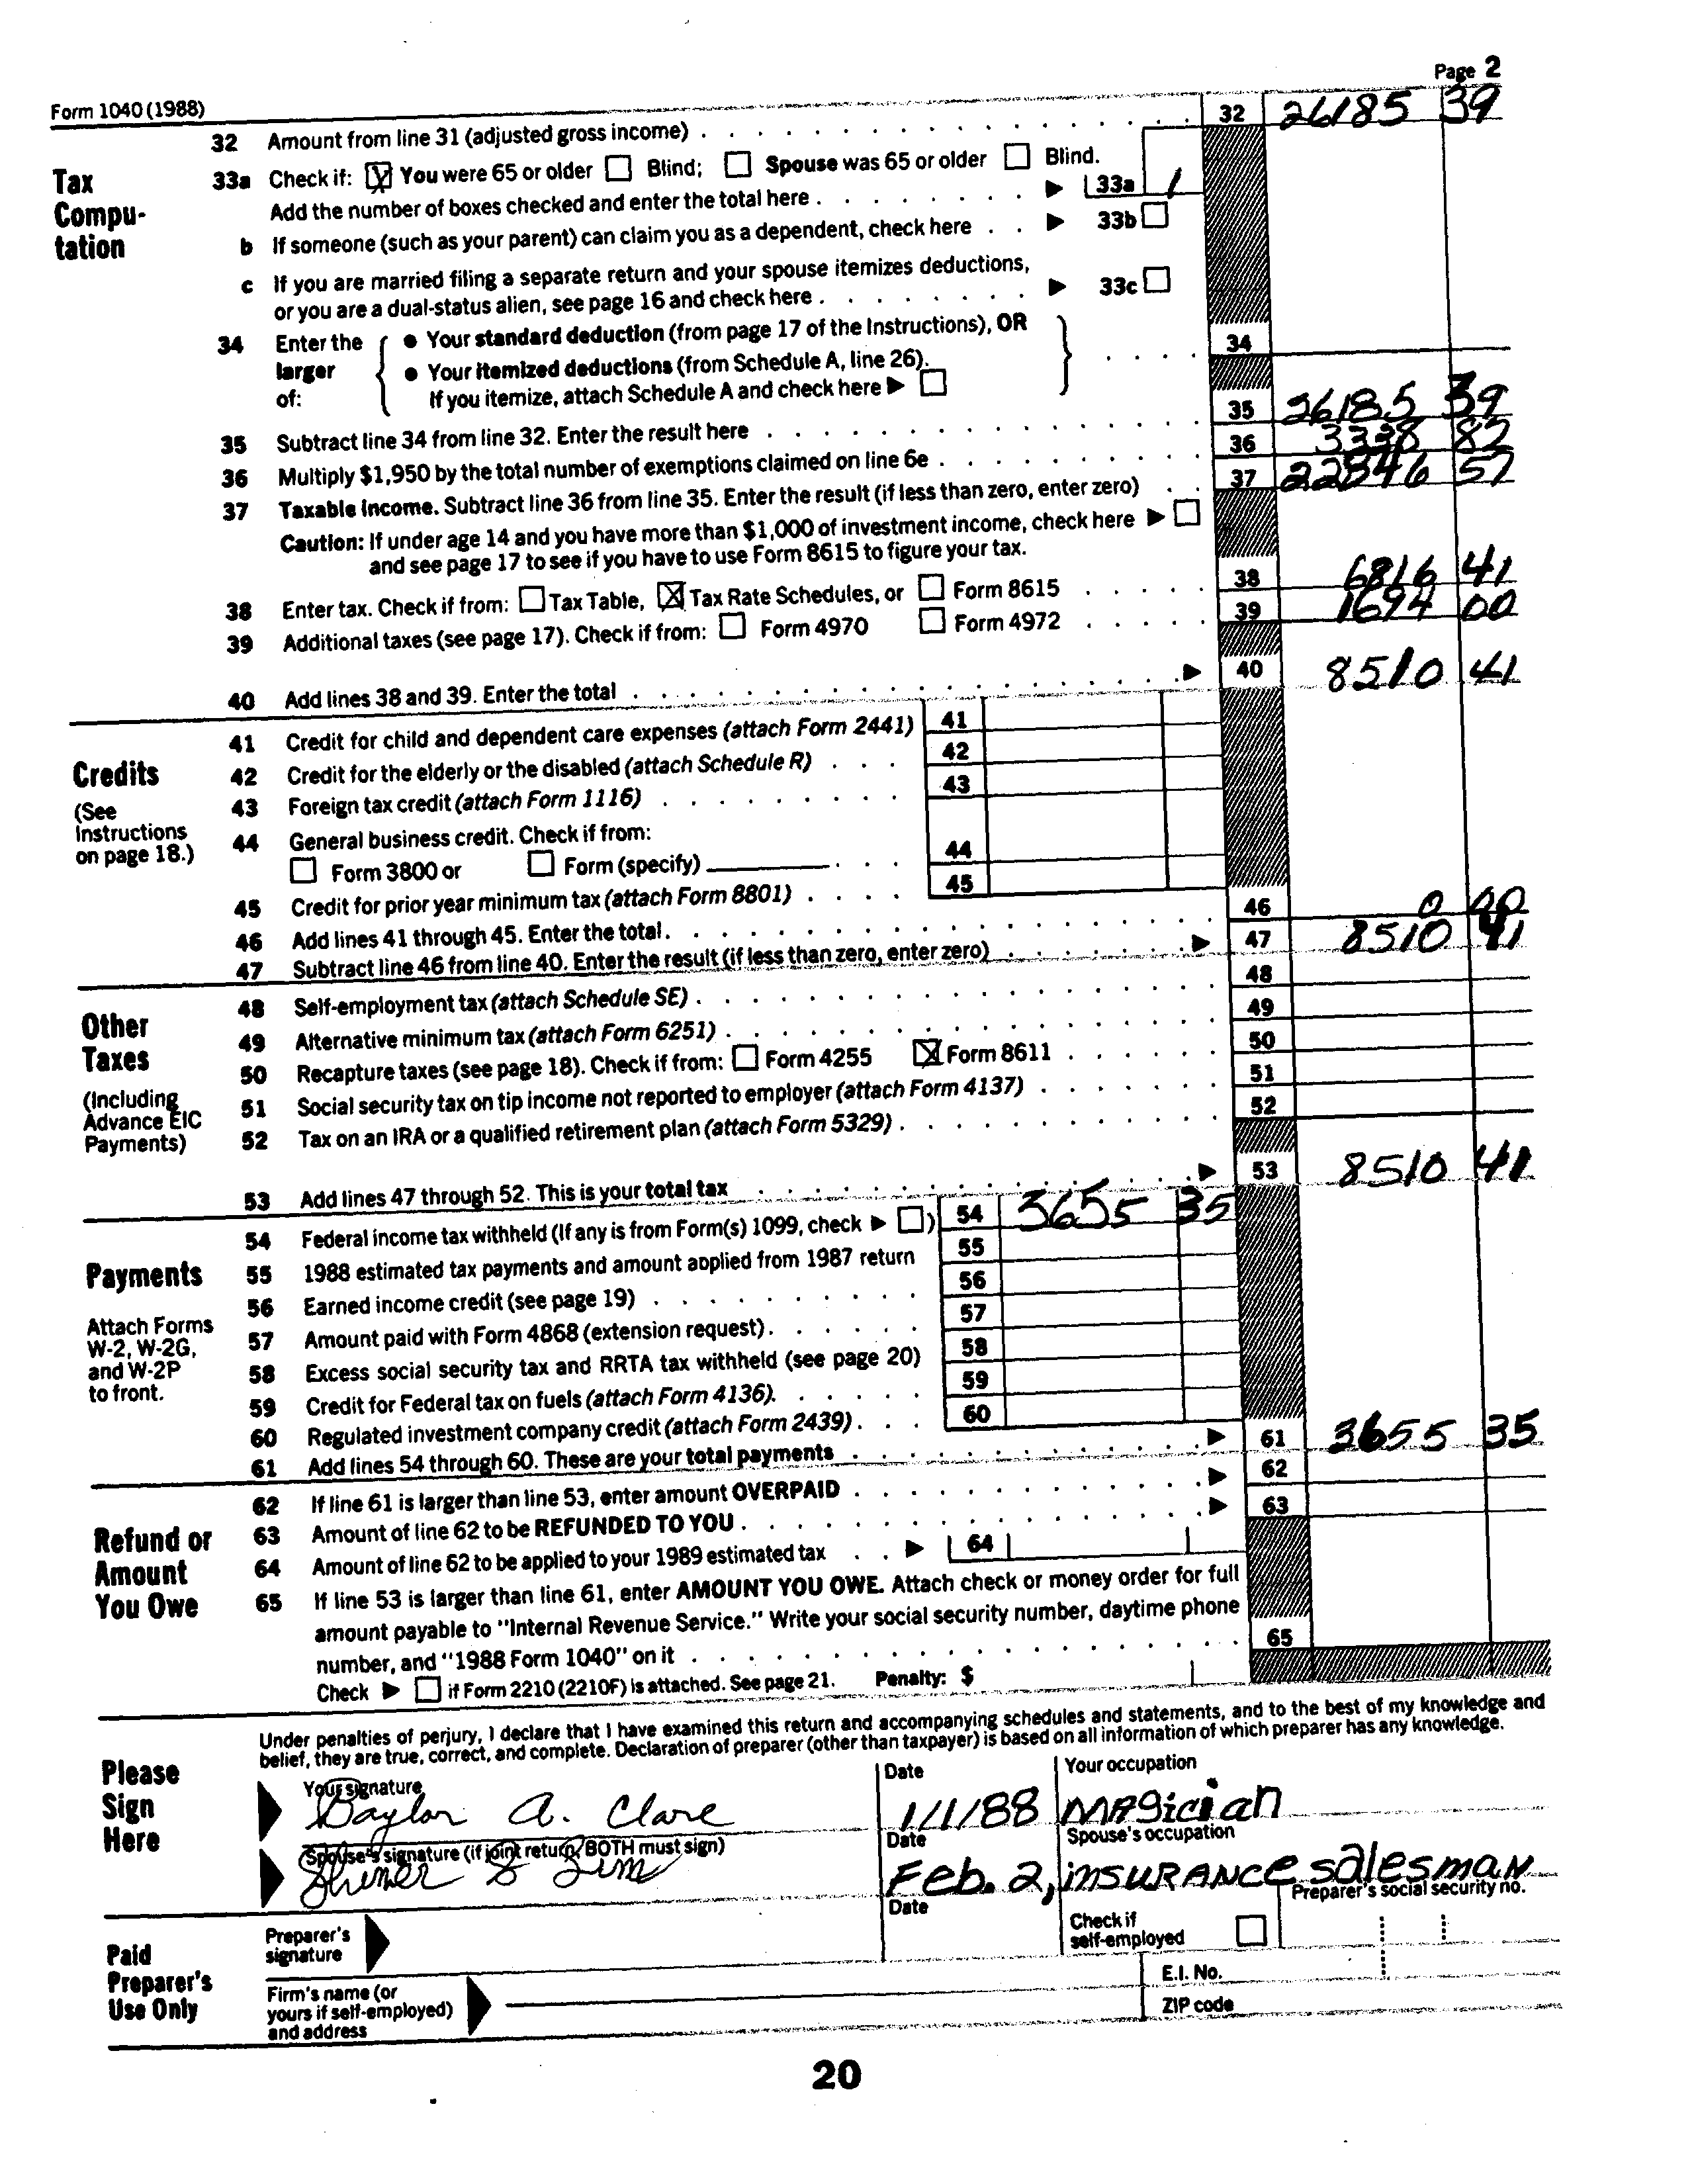 Page 2
Form 1040 (1988)
32 Amount from line 31 (adjusted gross income) 32 26185 39
Tax Compu-tation
33a Check if: [X] You were 65 or older ☐ Blind; ☐ Spouse was 65 or older ☐ Blind.
Add the number of boxes checked and enter the total here ▶ 33a 1
b If someone (such as your parent) can claim you as a dependent, check here ▶ 33b ☐
c If you are married filing a separate return and your spouse itemizes deductions,
or you are a dual-status alien, see page 16 and check here ▶ 33c ☐
34 Enter the larger of: { ● Your standard deduction (from page 17 of the Instructions), OR
● Your itemized deductions (from Schedule A, line 26).
If you itemize, attach Schedule A and check here ▶ ☐ } 34
35 Subtract line 34 from line 32. Enter the result here 35 26185 39
36 Multiply $1,950 by the total number of exemptions claimed on line 6e 36 3338 82
37 Taxable income. Subtract line 36 from line 35. Enter the result (if less than zero, enter zero) 37 22846 57
Caution: If under age 14 and you have more than $1,000 of investment income, check here ▶ ☐
and see page 17 to see if you have to use Form 8615 to figure your tax.
38 Enter tax. Check if from: ☐ Tax Table, [X] Tax Rate Schedules, or ☐ Form 8615 38 6816 41
39 Additional taxes (see page 17). Check if from: ☐ Form 4970 ☐ Form 4972 39 1694 00
40 Add lines 38 and 39. Enter the total ▶ 40 8510 41
Credits
(See Instructions on page 18.)
41 Credit for child and dependent care expenses (attach Form 2441) 41
42 Credit for the elderly or the disabled (attach Schedule R) 42
43 Foreign tax credit (attach Form 1116) 43
44 General business credit. Check if from:
☐ Form 3800 or ☐ Form (specify) 44
45 Credit for prior year minimum tax (attach Form 8801) 45
46 Add lines 41 through 45. Enter the total. 46 0 00
47 Subtract line 46 from line 40. Enter the result (if less than zero, enter zero) ▶ 47 8510 41
Other Taxes
(Including Advance EIC Payments)
48 Self-employment tax (attach Schedule SE) 48
49 Alternative minimum tax (attach Form 6251) 49
50 Recapture taxes (see page 18). Check if from: ☐ Form 4255 [X] Form 8611 50
51 Social security tax on tip income not reported to employer (attach Form 4137) 51
52 Tax on an IRA or a qualified retirement plan (attach Form 5329) 52
53 Add lines 47 through 52. This is your total tax ▶ 53 8510 41
Payments
Attach Forms W-2, W-2G, and W-2P to front.
54 Federal income tax withheld (If any is from Form(s) 1099, check ▶ ☐) 54 3655 35
55 1988 estimated tax payments and amount applied from 1987 return 55
56 Earned income credit (see page 19) 56
57 Amount paid with Form 4868 (extension request). 57
58 Excess social security tax and RRTA tax withheld (see page 20) 58
59 Credit for Federal tax on fuels (attach Form 4136). 59
60 Regulated investment company credit (attach Form 2439) 60
61 Add lines 54 through 60. These are your total payments ▶ 61 3655 35
Refund or Amount You Owe
62 If line 61 is larger than line 53, enter amount OVERPAID ▶ 62
63 Amount of line 62 to be REFUNDED TO YOU ▶ 63
64 Amount of line 62 to be applied to your 1989 estimated tax ▶ 64
65 If line 53 is larger than line 61, enter AMOUNT YOU OWE. Attach check or money order for full
amount payable to "Internal Revenue Service." Write your social security number, daytime phone
number, and "1988 Form 1040" on it 65
Check ▶ ☐ if Form 2210 (2210F) is attached. See page 21. Penalty: $
Please Sign Here
Under penalties of perjury, I declare that I have examined this return and accompanying schedules and statements, and to the best of my knowledge and
belief, they are true, correct, and complete. Declaration of preparer (other than taxpayer) is based on all information of which preparer has any knowledge.
Your signature Date Your occupation
Daylor A. Clare 1/1/88 MAgician
Spouse's signature (if joint return, BOTH must sign) Date Spouse's occupation
S Sim Feb. 2, iNSURANCE SalesmaN
Paid Preparer's Use Only
Preparer's signature Date Check if self-employed ☐ Preparer's social security no.
Firm's name (or yours if self-employed) and address E.I. No.
ZIP code
20